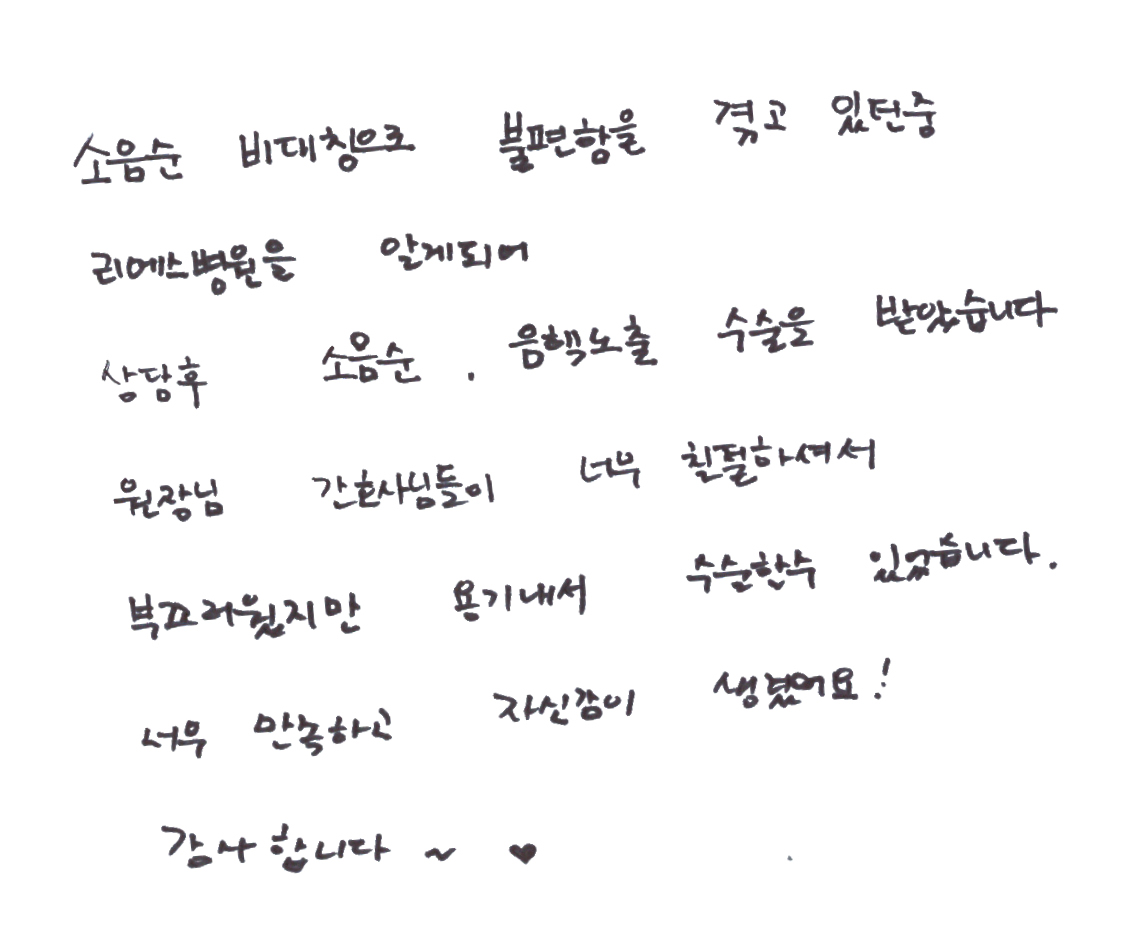 소음순 비대칭으로 불편함을 겪고 있던중
리에스병원을 알게되어
상담후 소음순 . 음핵노출 수술을 받았습니다
원장님 간호사님들이 너무 친절하셔서
부끄러웠지만 용기내서 수술한수 있었습니다.
너무 만족하고 자신감이 생겼어요!
감사합니다 ~ ♥